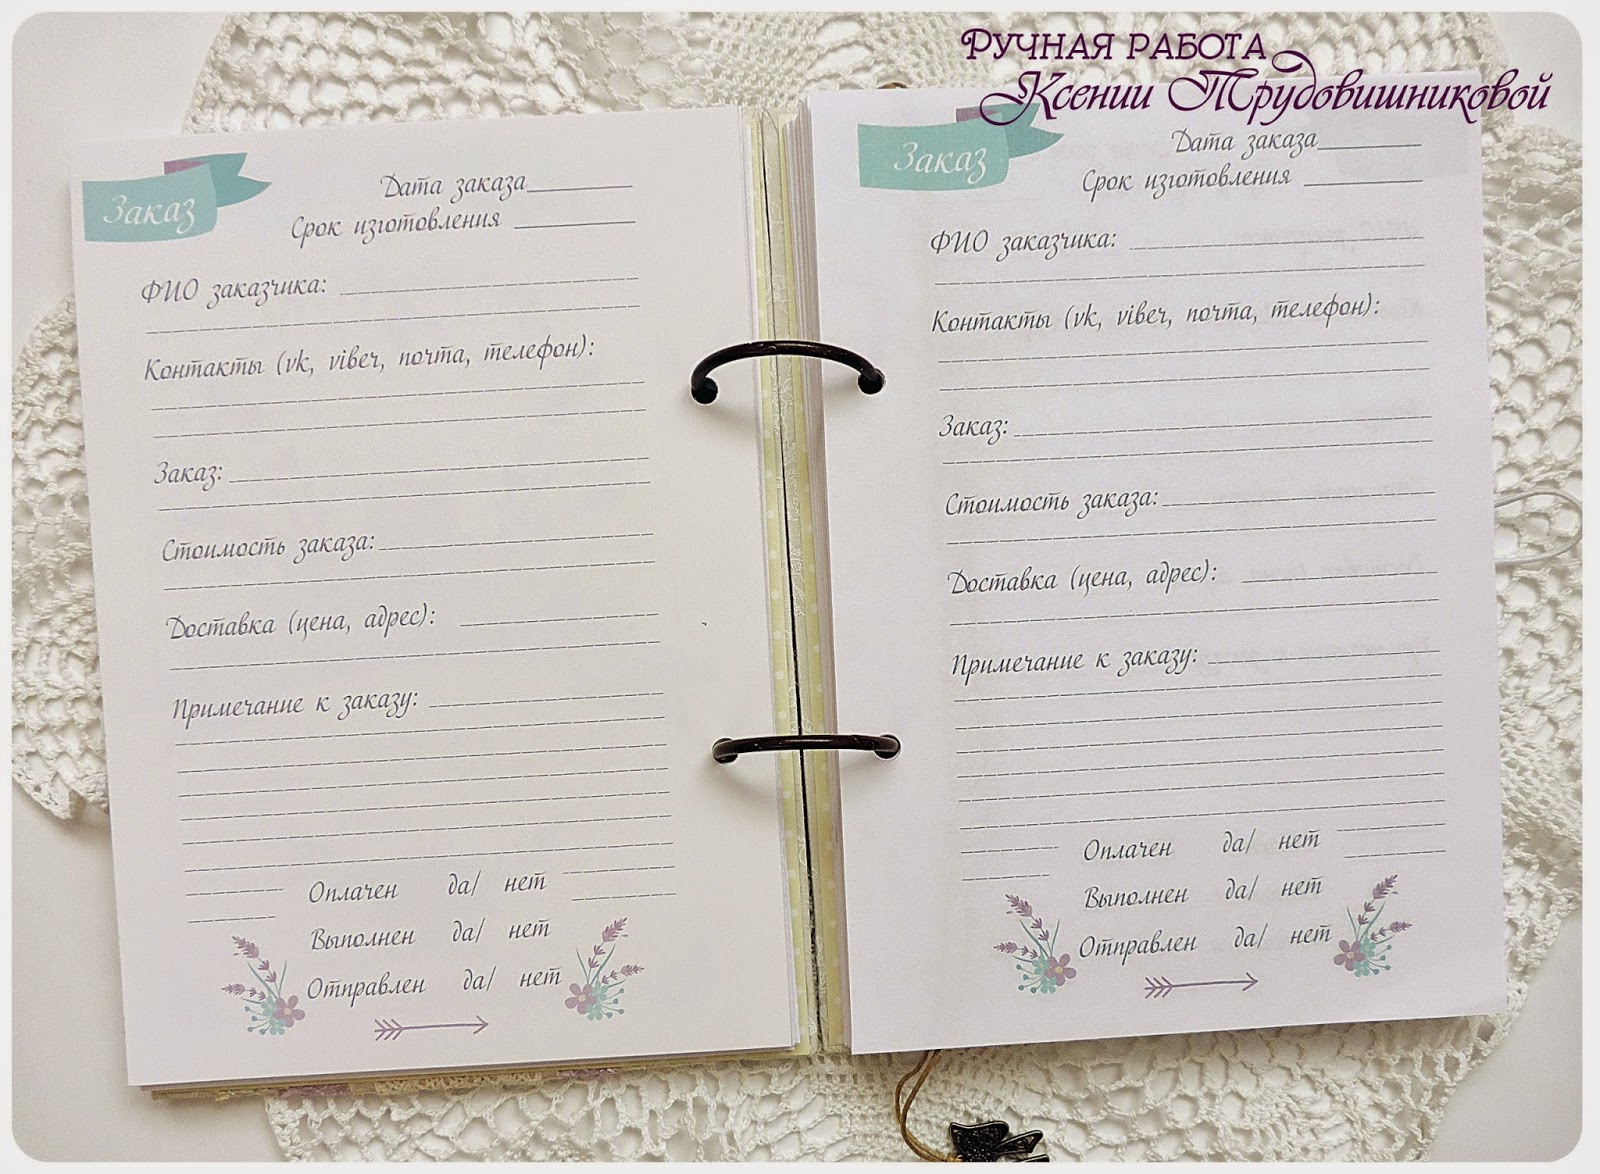 Ручная работа
Ксении Трудовишниковой
Заказ
Дата заказа
Срок изготовления
ФИО заказчика:
Контакты (vk, viber, почта, телефон):
Заказ:
Стоимость заказа:
Доставка (цена, адрес):
Примечание к заказу:
Оплачен да/ нет
Выполнен да/ нет
Отправлен да/ нет
Заказ
Дата заказа
Срок изготовления
ФИО заказчика:
Контакты (vk, viber, почта, телефон):
Заказ:
Стоимость заказа:
Доставка (цена, адрес):
Примечание к заказу:
Оплачен да/ нет
Выполнен да/ нет
Отправлен да/ нет